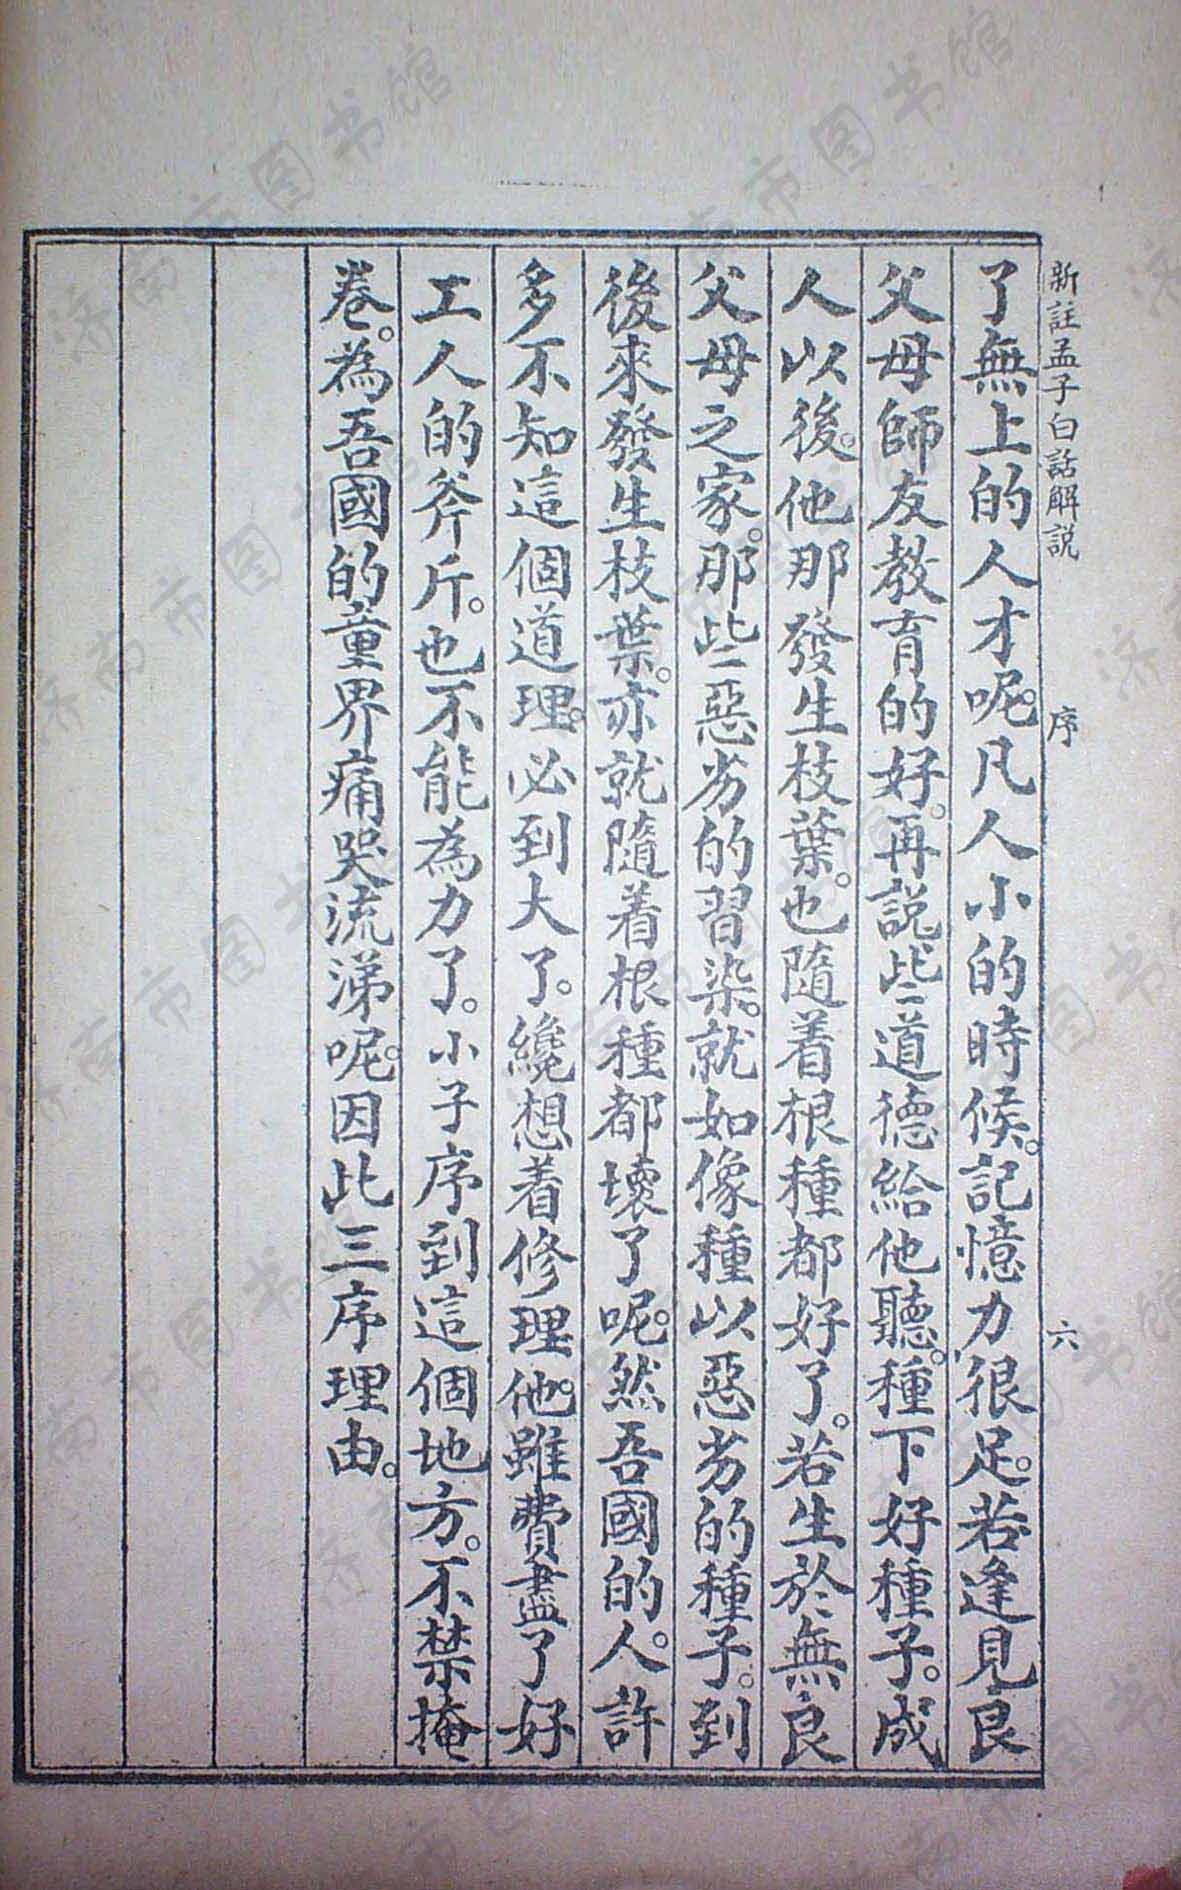 新註孟子白話解説 序 六
了無上的人才呢。凡人小的時候。記憶力很足。若逢見良
父母師友教育的好。再説些道德給他聽。種下好種子。成
人以後。他那發生枝葉。也隨着根種都好了。若生於無良
父母之家。那些惡劣的習染。就如像種以惡劣的種子。到
後來發生枝葉。亦就隨着根種都壞了呢。然吾國的人。許
多不知這個道理。必到大了。纔想着修理他。雖費盡了好
工人的斧斤。也不能為力了。小子序到這個地方。不禁掩
卷。為吾國的童界痛哭流涕呢。因此三序理由。
济南市图书馆